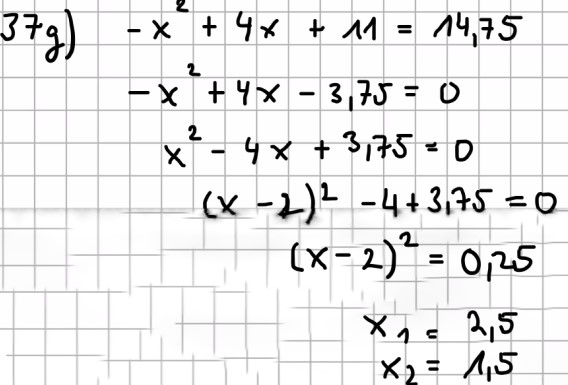 37g) -x² + 4x + 11 = 14,75
-x² + 4x - 3,75 = 0
x² - 4x + 3,75 = 0
(x - 2)² - 4 + 3,75 = 0
(x - 2)² = 0,25
x₁ = 2,5
x₂ = 1,5